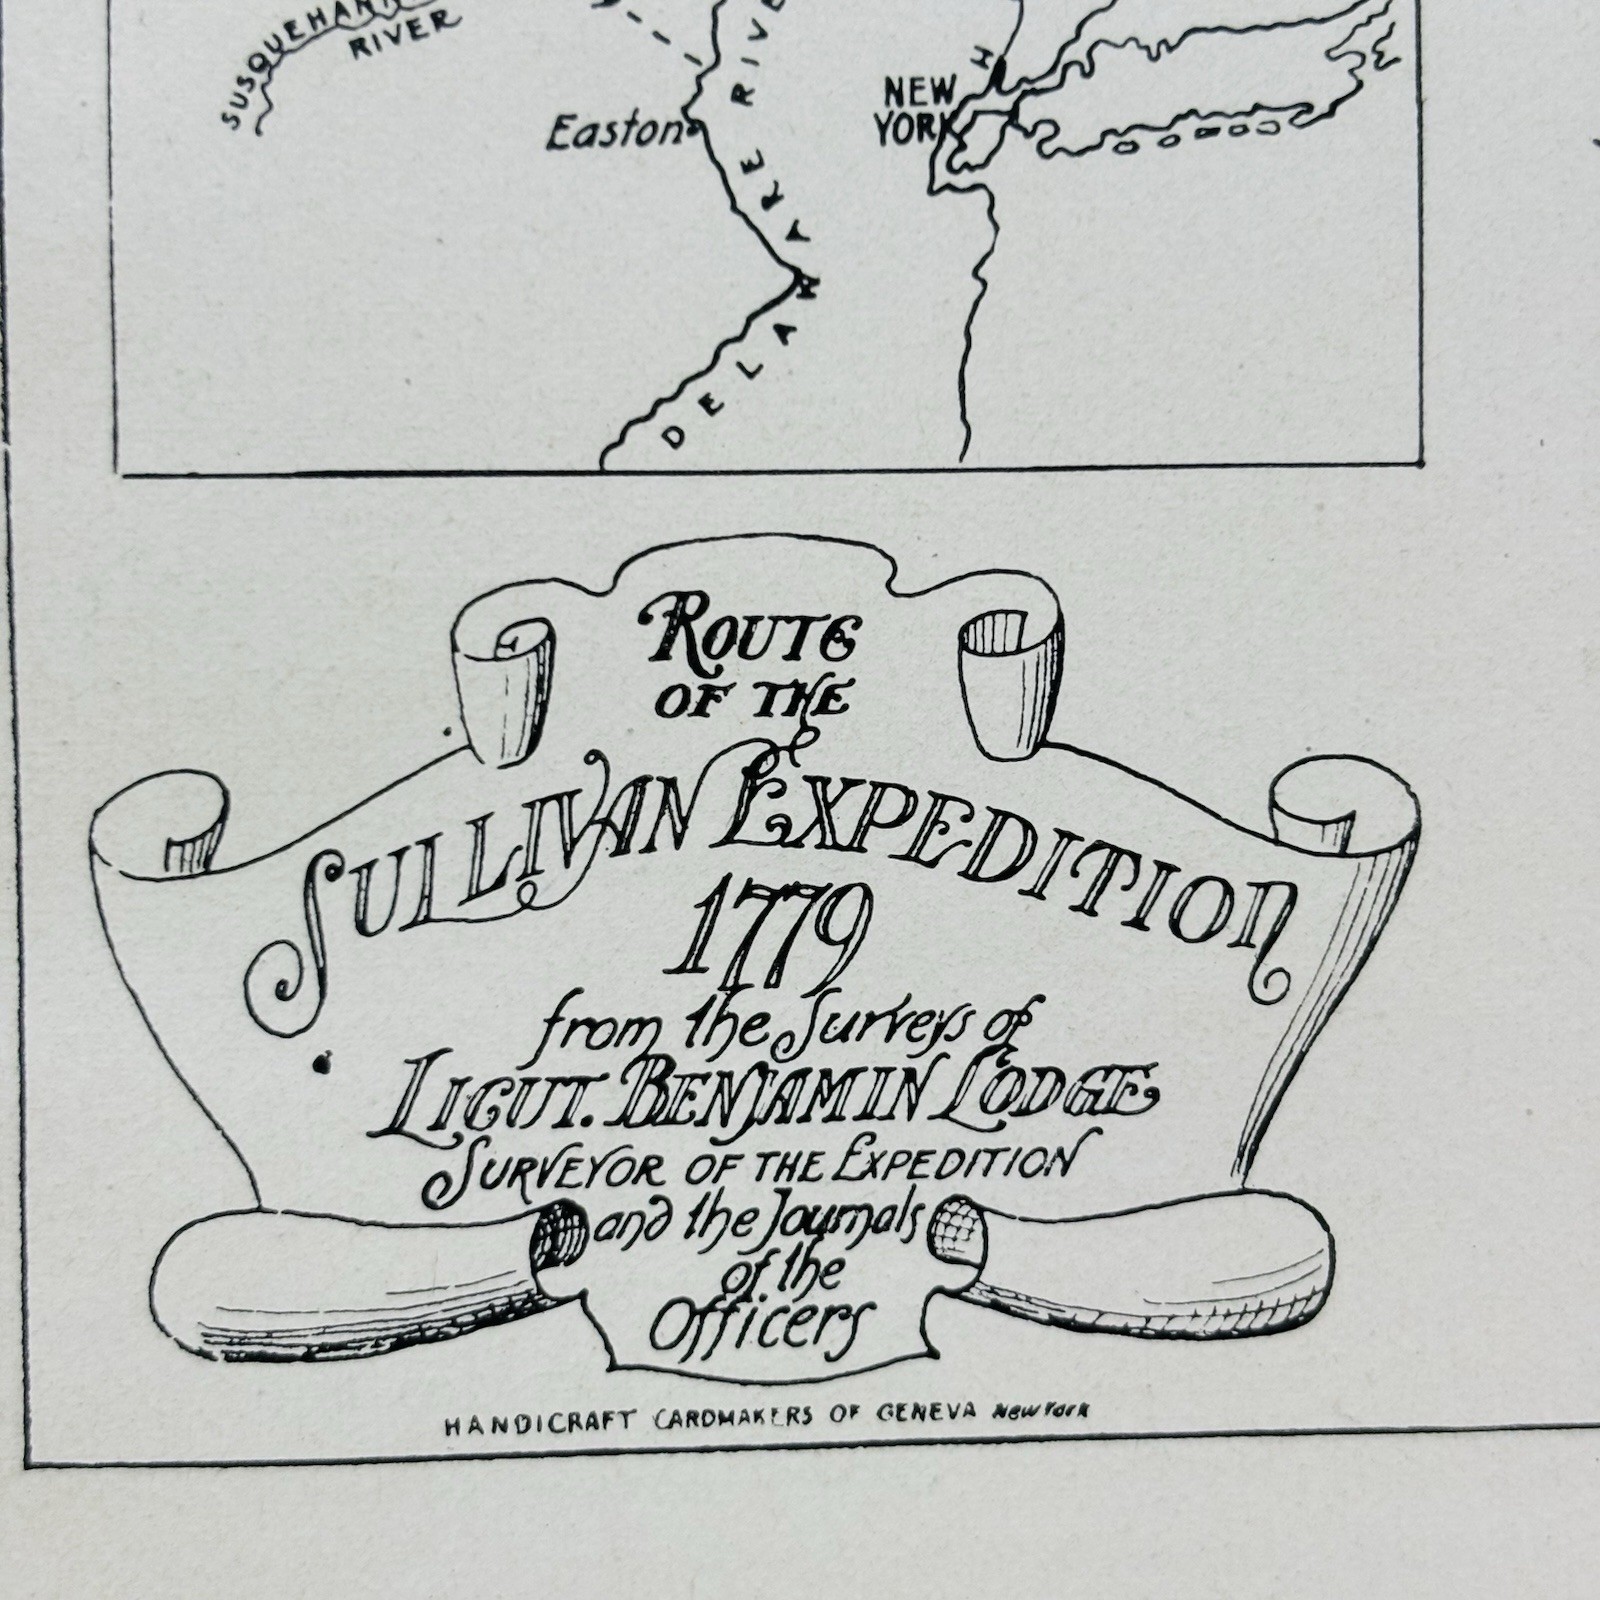 SUSQUEHAN
RIVER
RIVE
H
NEW
YORK
Easton
DELAWARE
ROUTE
OF THE
SULLIVAN EXPEDITION
1779
from the Surveys of
LIEUT. BENJAMIN LODGE
SURVEYOR OF THE EXPEDITION
and the Journals
of the
Officers
HANDICRAFT CARDMAKERS OF GENEVA New York